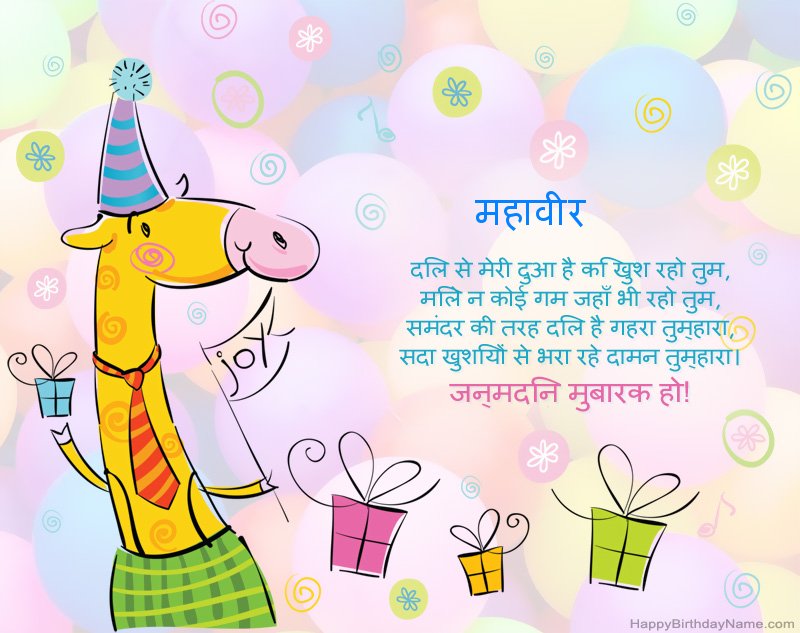 महावीर
दलि से मेरी दुआ है कि खुश रहो तुम,
मलिे न कोई गम जहाँ भी रहो तुम,
समंदर की तरह दलि है गहरा तुम्हारा,
सदा खुशयिों से भरा रहे दामन तुम्हारा।
जन्मदनि मुबारक हो!
joy
HappyBirthdayName.com